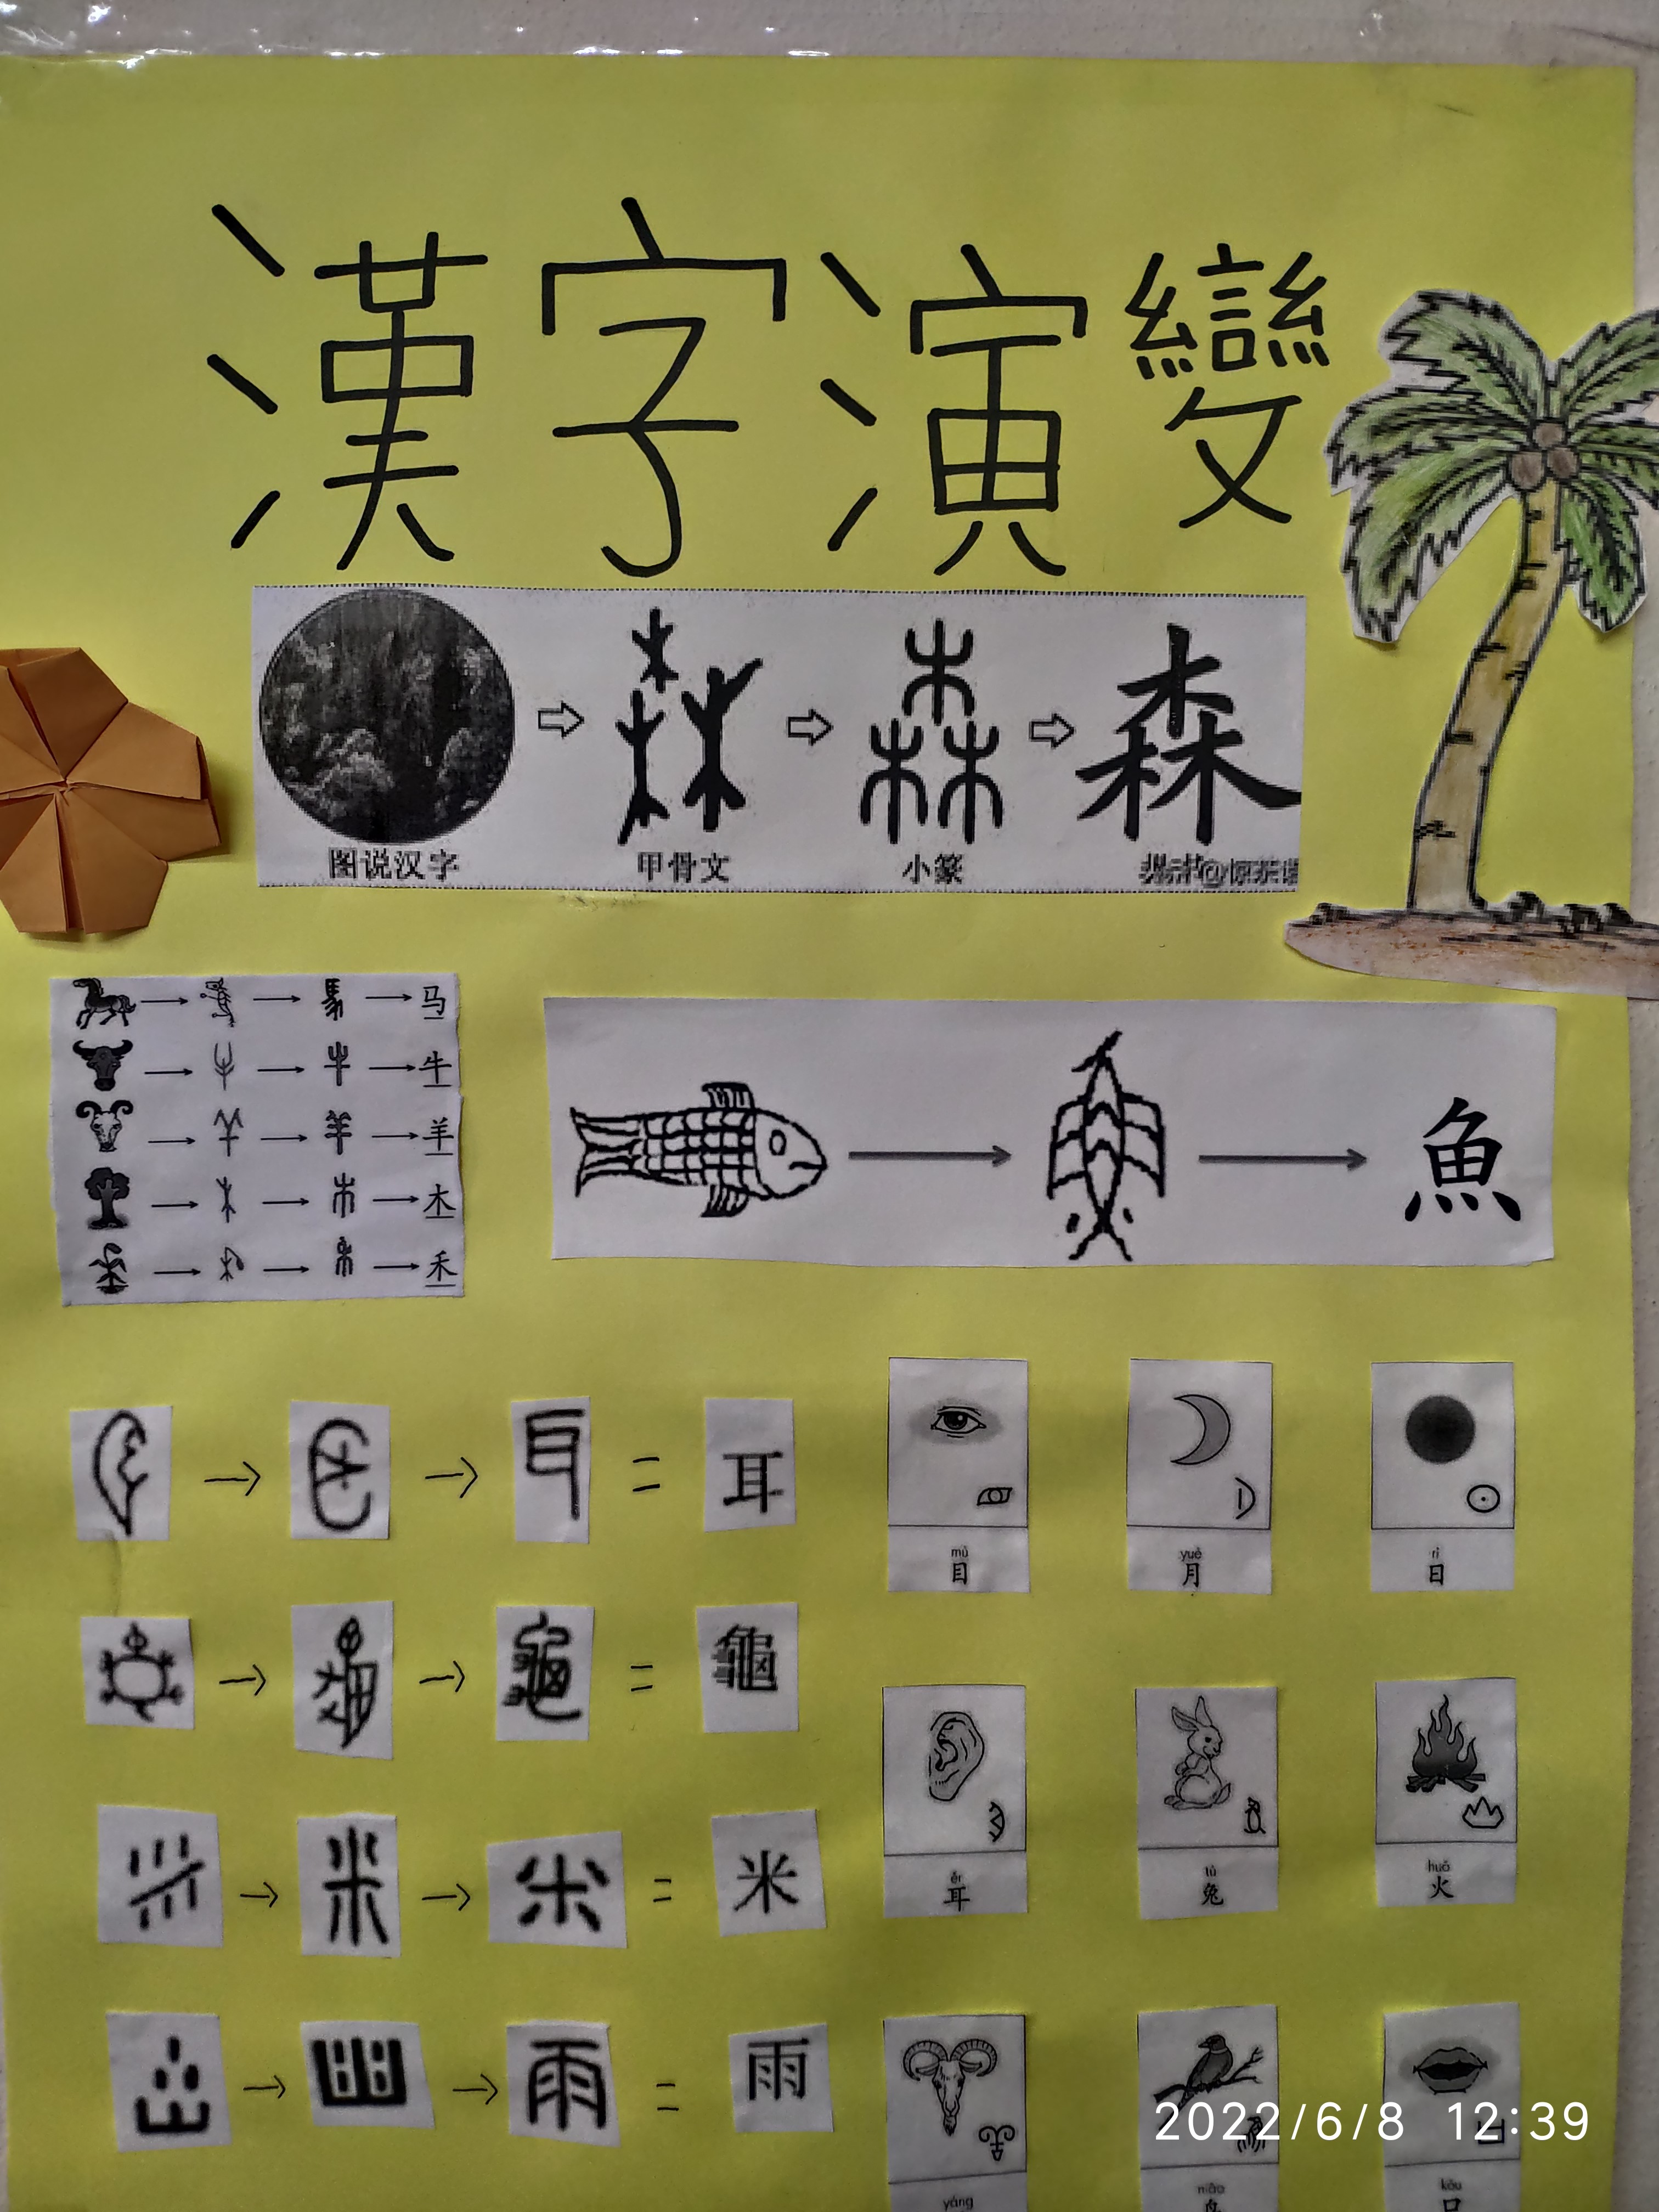 漢字演變
森
图说汉字 甲骨文 小篆
马
牛
羊
木
禾
魚
耳
龜
米
雨
mù yuè rì
目 月 日
ěr tù huǒ
耳 兔 火
yáng niǎo kǒu
2022/6/8 12:39